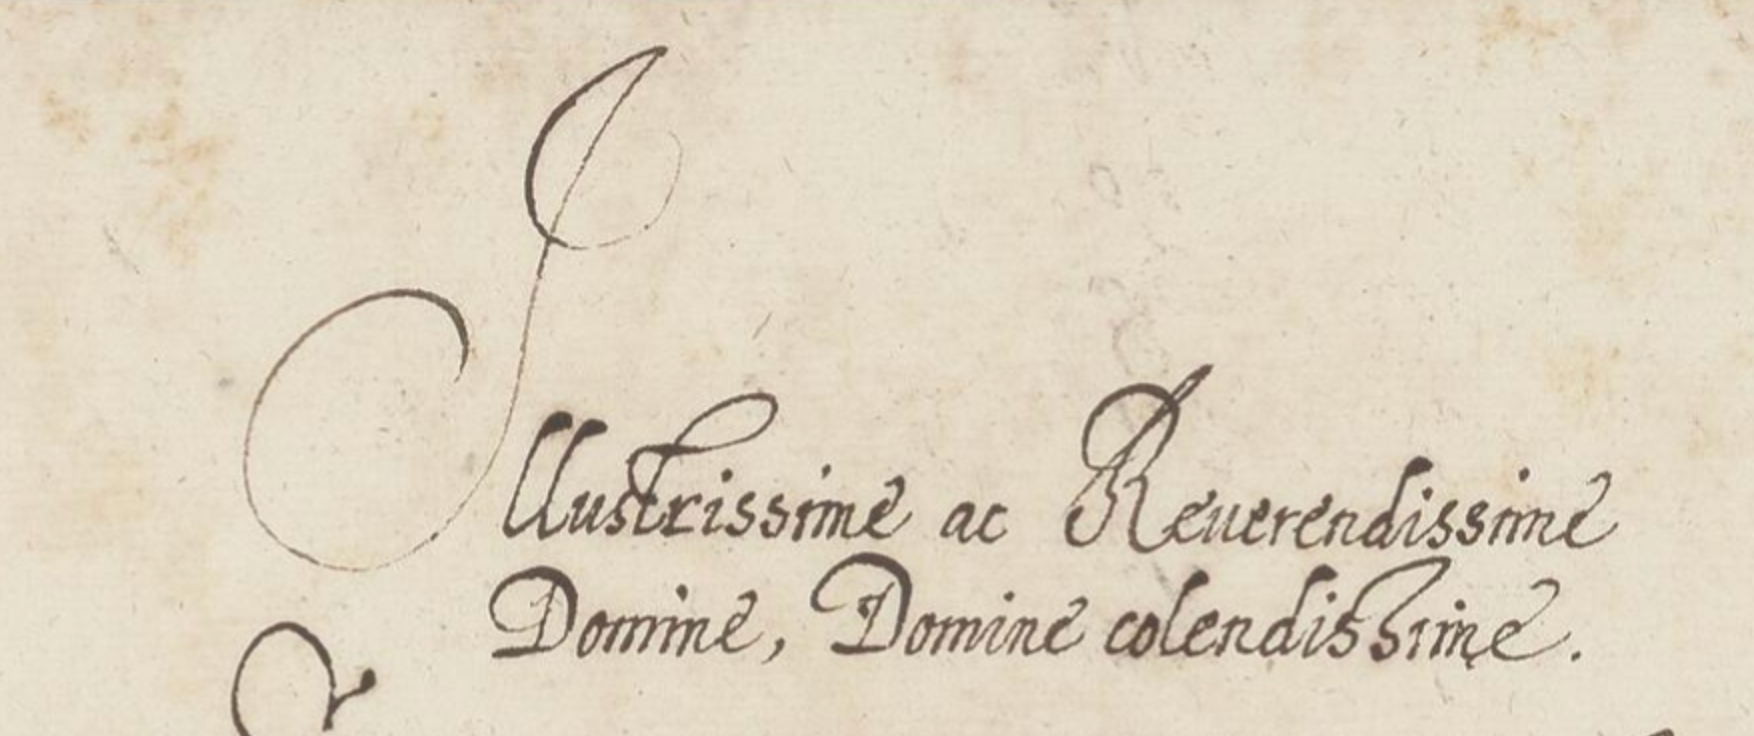 Illustrissime ac Reuerendissime
Domine, Domine colendissime.